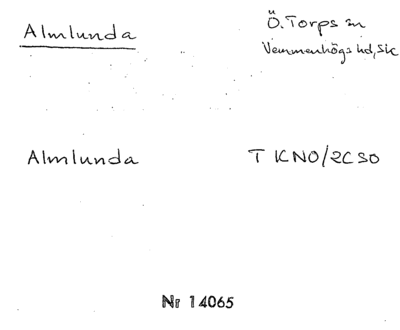 Almlunda
Ö. Torps sn
Vemmenhögs hd, Sk
Almlunda
T 1CNO/2CSO
Nr 14065